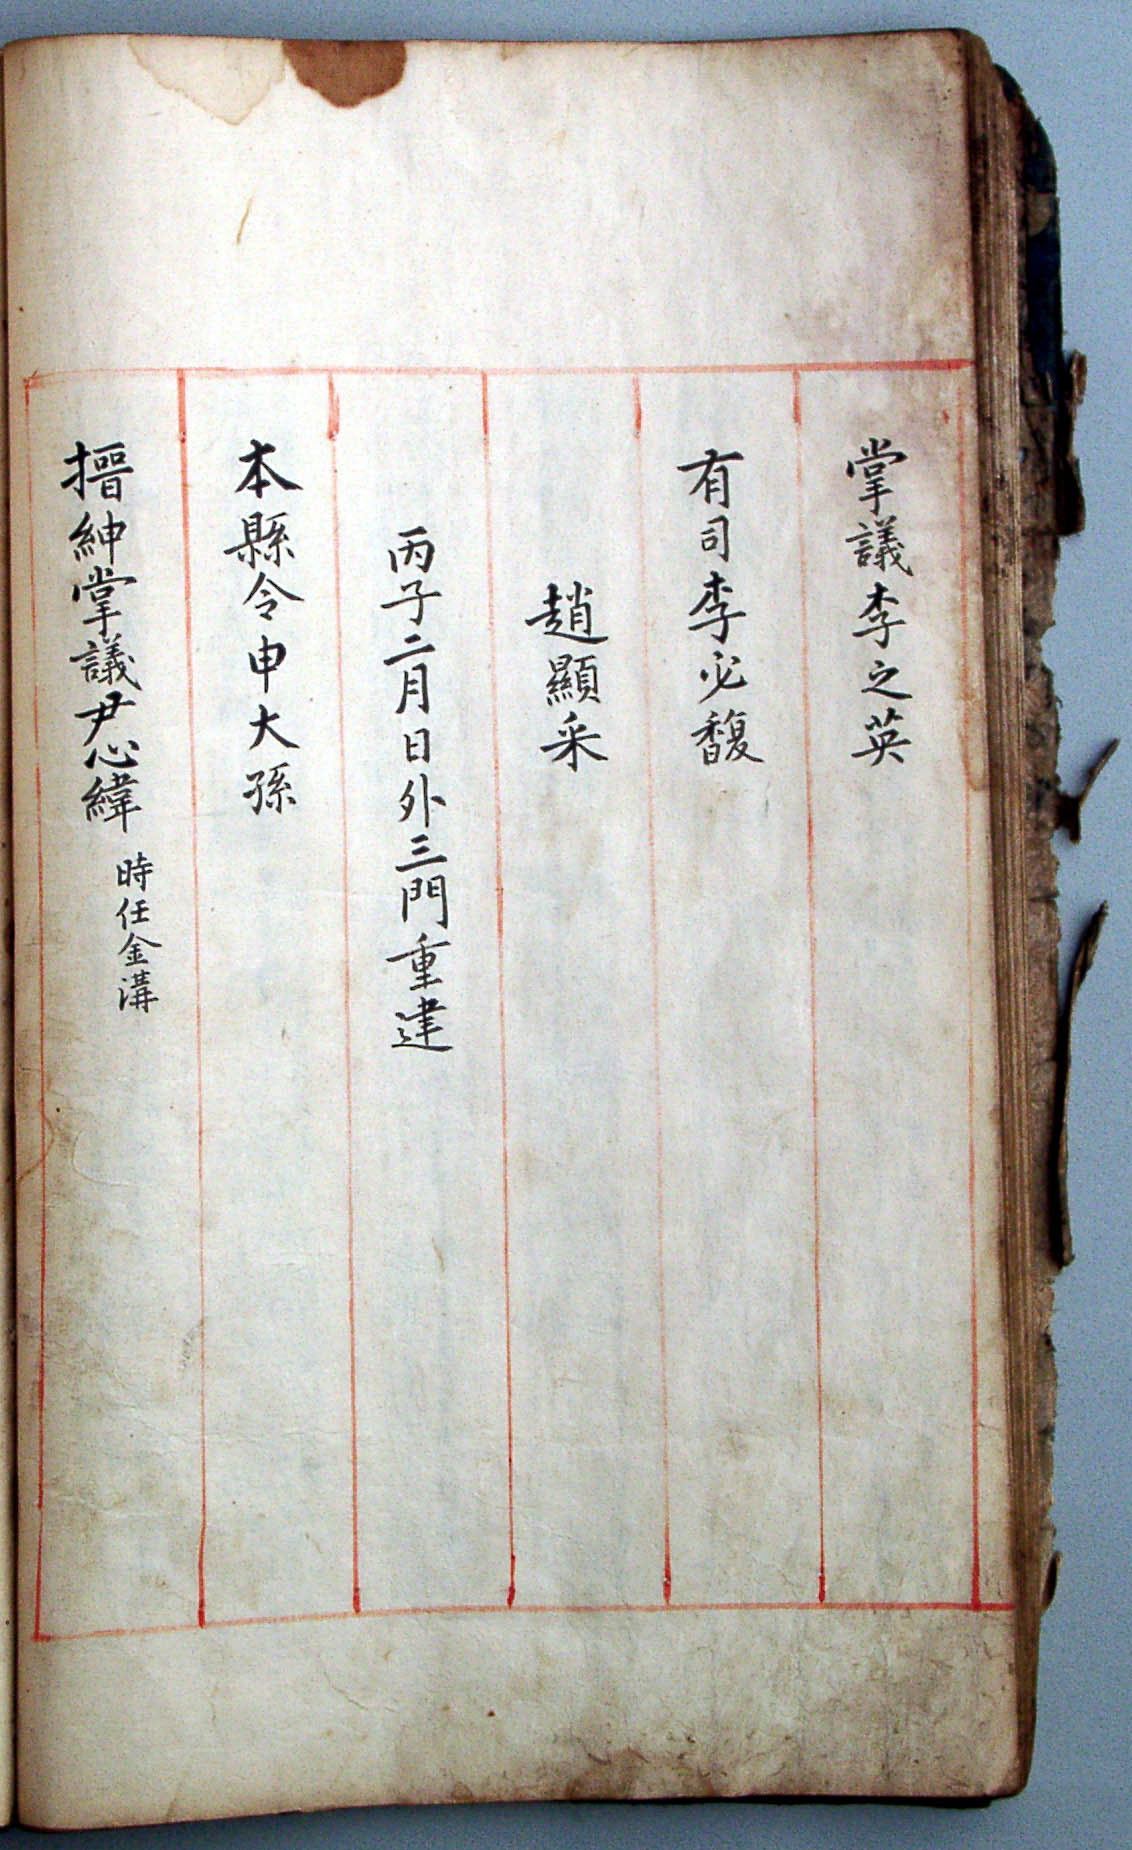 掌議李之英
有司李必馥
趙顯采
丙子二月日外三門重建
本縣令申大孫
搢紳掌議尹心緯 時任金溝